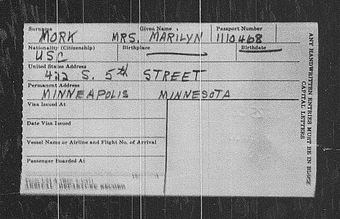 Surname Given Name Passport Number
MORK MRS. MARILYN 1110468
Nationality (Citizenship) Birthplace Birthdate
USC
United States Address
422 S. 5th STREET
Permanent Address
MINNEAPOLIS MINNESOTA
Visa Issued At
Date Visa Issued
Vessel Name or Airline and Flight No. of Arrival
Passenger Boarded At
DEPARTURE RECORD
ANY HANDWRITTEN ENTRIES MUST BE IN BLOCK
CAPITAL LETTERS